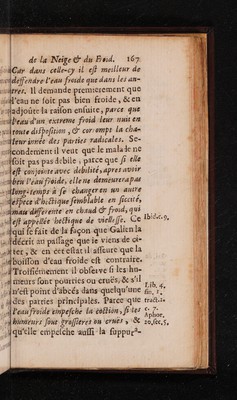 de la Neige & du Froid. 167
Car dans celle-cy il est meilleur de
deffendre l'eau froide que dans les au-
tres. Il demande premierement que
l'eau ne soit pas bien froide, & en
adjoûte la raison ensuite, parce que
l'eau d'un extreme froid leur nuit en
toute disposition, & corrompt la cha-
leur innée des parties radicales. Se-
condement il veut que le malade ne
soit pas pas debile, parce que si elle
est conjointe avec debilité, apres avoir
beu l'eau froide, elle ne demeurera pas
long-temps à se changer en un autre
espece d'hectique semblable en siccité,
mais differente en chaud & froid, qui
est appellée hectique de vieillesse. Ce
qui se fait de la façon que Galien la
décrit au passage que je viens de ci-
ter, & en cet estat il asseure que la
boisson d'eau froide est contraire.
Troisiémement il observe si les hu-
meurs sont pourries ou cruës, & s'il
n'est point d'abcés dans quelqu'une
des parties principales. Parce que
l'eau froide empesche la coction, si les
humeurs sont grossieres ou cruës, &
qu'elle empesche aussi la suppura-
Ibid. c. 9.
Lib. 4.
fin. 1.
tract. 1.
c. 7.
Aphor.
20. sec. 5.